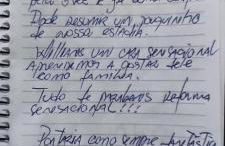 Pode resumir um pouquinho
de nossa estadia.
Willians um cara sensacional
Aprendemos a gostar dele
como família.
Tudo de parabéns reforma
sensacional!!!
Portaria como sempre fantástica